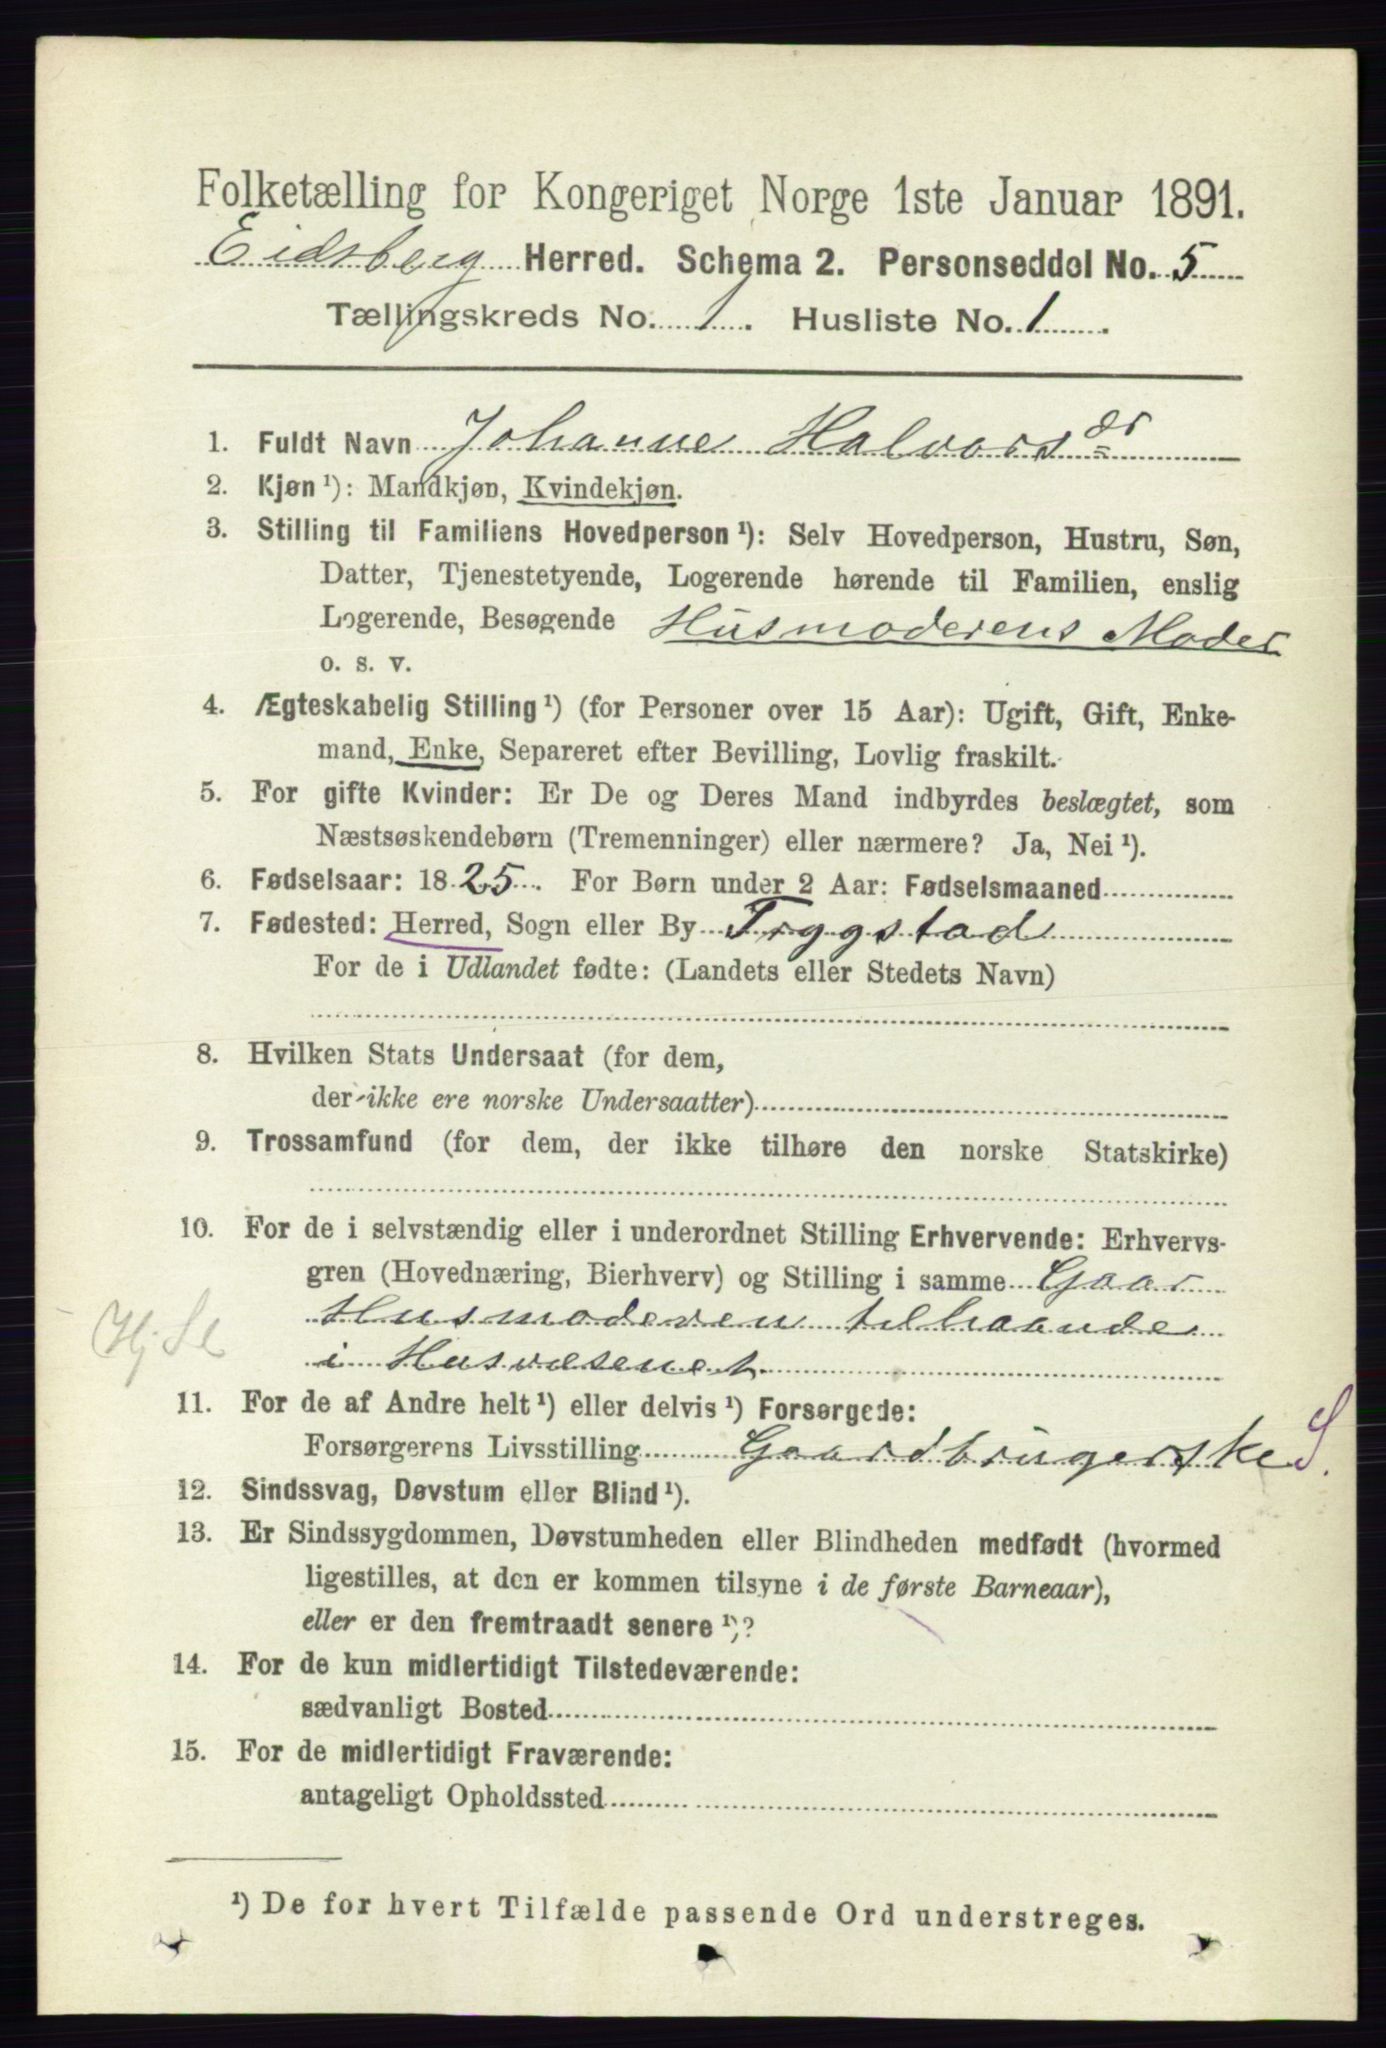 Folketælling for Kongeriget Norge 1ste Januar 1891.
Eidsberg Herred. Schema 2. Personseddel No. 5
Tællingskreds No. 1. Husliste No. 1.
1. Fuldt Navn Johanne Halvorsdr
2. Kjøn ¹): Mandkjøn, Kvindekjøn.
3. Stilling til Familiens Hovedperson ¹): Selv Hovedperson, Hustru, Søn,
Datter, Tjenestetyende, Logerende hørende til Familien, enslig
Logerende, Besøgende Husmoderens Moder
o. s. v.
4. Ægteskabelig Stilling ¹) (for Personer over 15 Aar): Ugift, Gift, Enke-
mand, Enke, Separeret efter Bevilling, Lovlig fraskilt.
5. For gifte Kvinder: Er De og Deres Mand indbyrdes beslægtet, som
Næstsøskendebørn (Tremenninger) eller nærmere? Ja, Nei ¹).
6. Fødselsaar: 1825. For Børn under 2 Aar: Fødselsmaaned
7. Fødested: Herred, Sogn eller By Trygstad
For de i Udlandet fødte: (Landets eller Stedets Navn)
8. Hvilken Stats Undersaat (for dem,
der ikke ere norske Undersaatter)
9. Trossamfund (for dem, der ikke tilhøre den norske Statskirke)
10. For de i selvstændig eller i underordnet Stilling Erhvervende: Erhvervs-
gren (Hovednæring, Bierhverv) og Stilling i samme Gaar
Husmoderen tilhaande
i Husvæsenet
Hj. Sl
11. For de af Andre helt ¹) eller delvis ¹) Forsørgede:
Forsørgerens Livsstilling Gaardbrugerske S.
12. Sindssvag, Døvstum eller Blind ¹).
13. Er Sindssygdommen, Døvstumheden eller Blindheden medfødt (hvormed
ligestilles, at den er kommen tilsyne i de første Barneaar),
eller er den fremtraadt senere ¹)?
14. For de kun midlertidigt Tilstedeværende:
sædvanligt Bosted
15. For de midlertidigt Fraværende:
antageligt Opholdssted
¹) De for hvert Tilfælde passende Ord understreges.